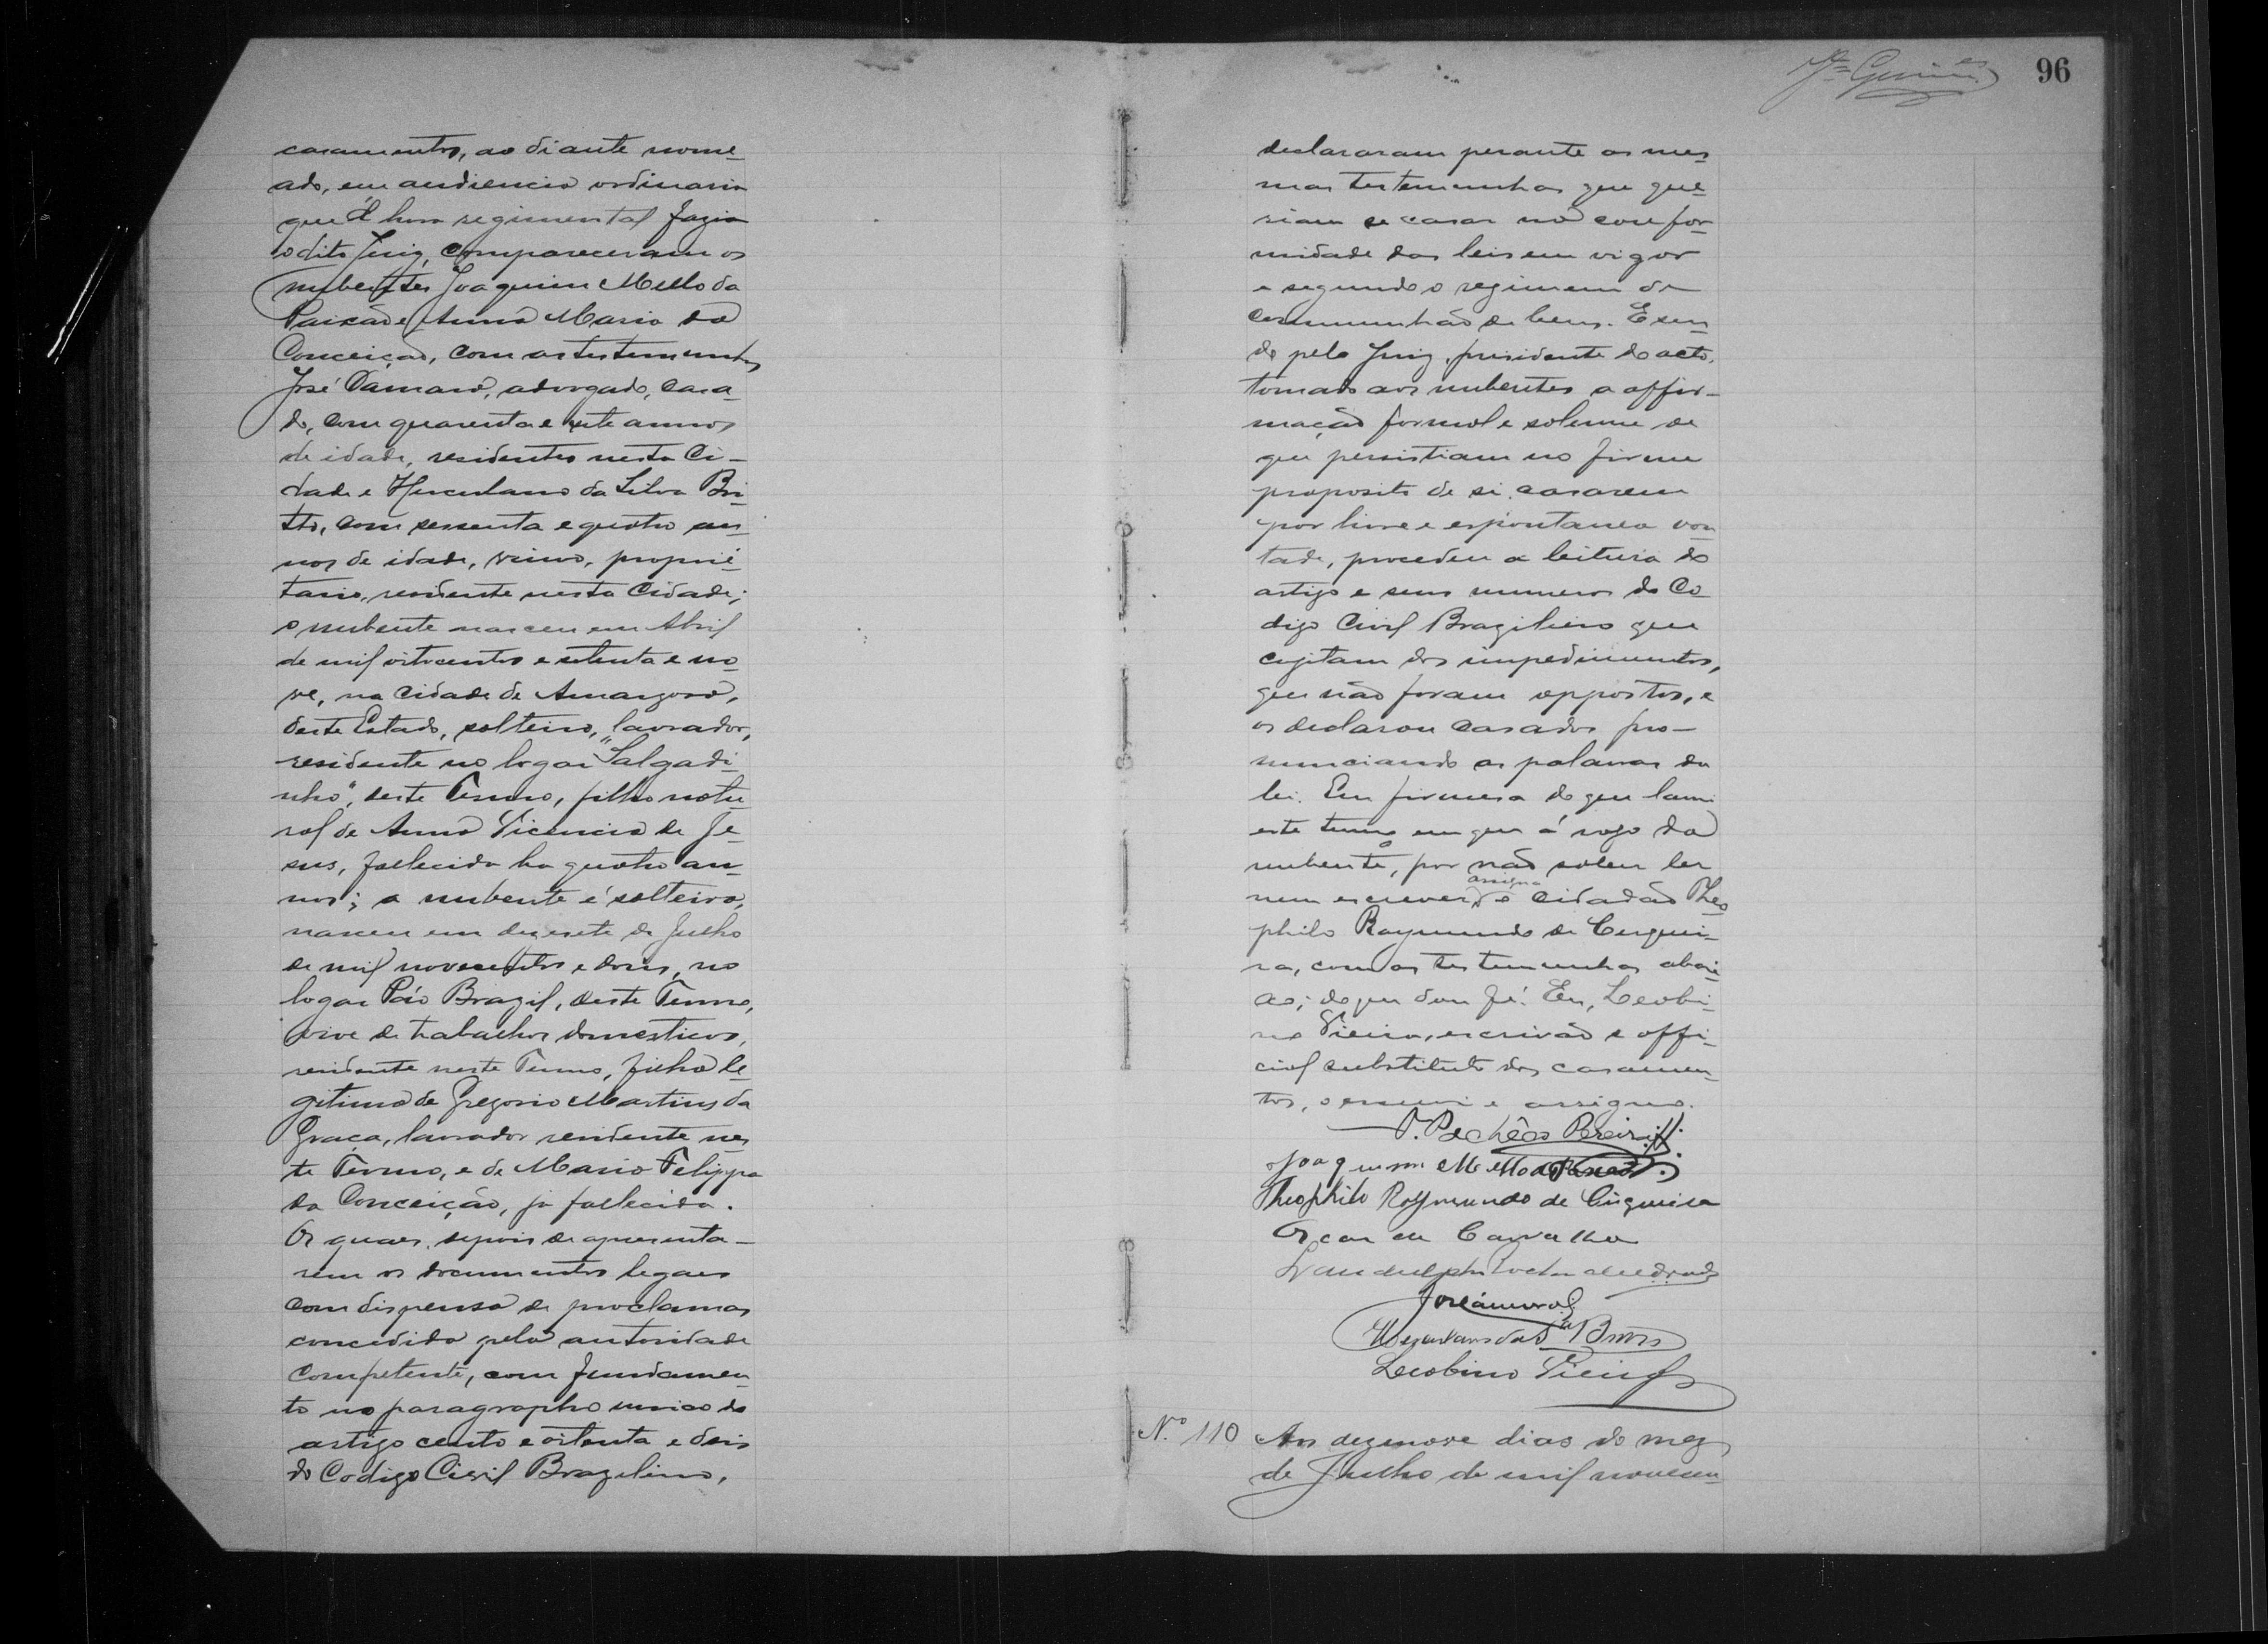 casamentos, ao diante nome-
ado, em audiencia ordinaria
que á hora regimental fazia
o dito Juiz, compareceram os
nubentes Joaquim Mello da
Paixão e Anna Maria da
Conceição, com as testemunhas
José Camara, advogado, casa-
do, com quarenta e sete annos
de idade, residentes nesta Ci-
dade e Herculano da Silva Bri-
tto, com sessenta e quatro an-
nos de idade, viuvo, proprie-
tario, residente nesta Cidade;
o nubente nasceu em Abril
de mil oitocentos e setenta e no-
ve, na Cidade de Amargosa,
deste Estado, solteiro, lavrador,
residente no logar "Salgadi-
nho", deste Termo, filho natu-
ral de Anna Vicencia de Je-
sus, fallecida ha quatro an-
nos; a nubente é solteira,
nasceu em dezesete de Julho
de mil novecentos e dois, no
logar Páo Brazil, deste Termo,
vive de trabalhos domesticos,
residente neste Termo, filha le-
gitima de Gregorio Martins da
Graça, lavrador residente nes-
te Termo, e de Maria Felippa
da Conceição, já fallecida.
Os quaes, depois de apresenta-
rem os documentos legaes
com dispensa de proclamas
concedida pela autoridade
competente, com fundamen-
to no paragrapho unico do
artigo cento e oitenta e dois
do Codigo Civil Brazileiro,
96
declararam perante as mes-
mas testemunhas que que-
riam se casar na confor-
midade das leis em vigor
e segundo o regimem de
communhão de bens. E sen-
do pelo Juiz, presidente do acto,
tomado aos nubentes a affir-
mação formal e solemne de
que persistiam no firme
proposito de si casarem
por livre e espontanea von-
tade, procedeu a leitura do
artigo e seus numeros do Co-
digo Civil Brazileiro que
cogitam dos impedimentos,
que não foram oppostos, e
os declarou casados pro-
nunciando as palavras da
lei. Em firmesa do que lavrei
este termo em que á rogo da
nubente, por não saber ler
nem escrever, assigna o cidadão Theo-
philo Raymundo de Cerquei-
ra, com as testemunhas abai-
xo; do que dou fé. Eu, Leobi-
no Vieira, escrivão e offi-
cial substituto dos casamen-
tos, o escrevi e assigno.
Pachêco Pereira
Joaquim Mello da Paixão
Theophilo Raymundo de Cirqueira
Oscar de Carvalho
José Camara
Herculano da Sª Britto
Leobino Vieira
N.º 110 Aos dezenove dias do mez
de Julho de mil novecen-